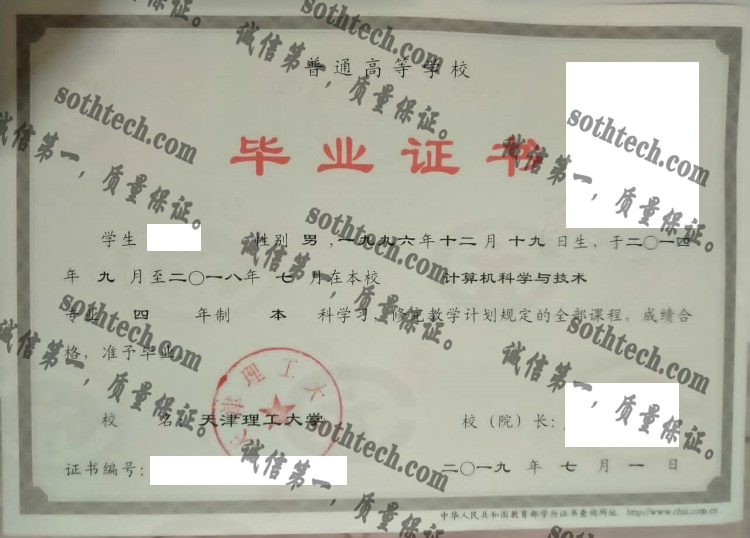 普通高等学校
毕业证书
学生 性别 男 ，一九九六年十二月十九日生，于二〇一四
年 九 月至二〇一八年 七 月在本校 计算机科学与技术
专业 四 年制 本 科学习，修完教学计划规定的全部课程，成绩合
格，准予毕业
天津理工大
校 名： 天津理工大学 校（院）长：
证书编号： 二〇一九 年 七 月 一 日
中华人民共和国教育部学历证书查询网址 http://www.chsi.com.cn
sothtech.com
诚信第一，质量保证。
sothtech.com
诚信第一，质量保证。
sothtech.com
诚信第一，质量保证。
sothtech.com
诚信第一，质量保证。
sothtech.com
诚信第一，质量保证。
sothtech.com
诚信第一，质量保证。
sothtech.com
诚信第一，质量保证。
sothtech.com